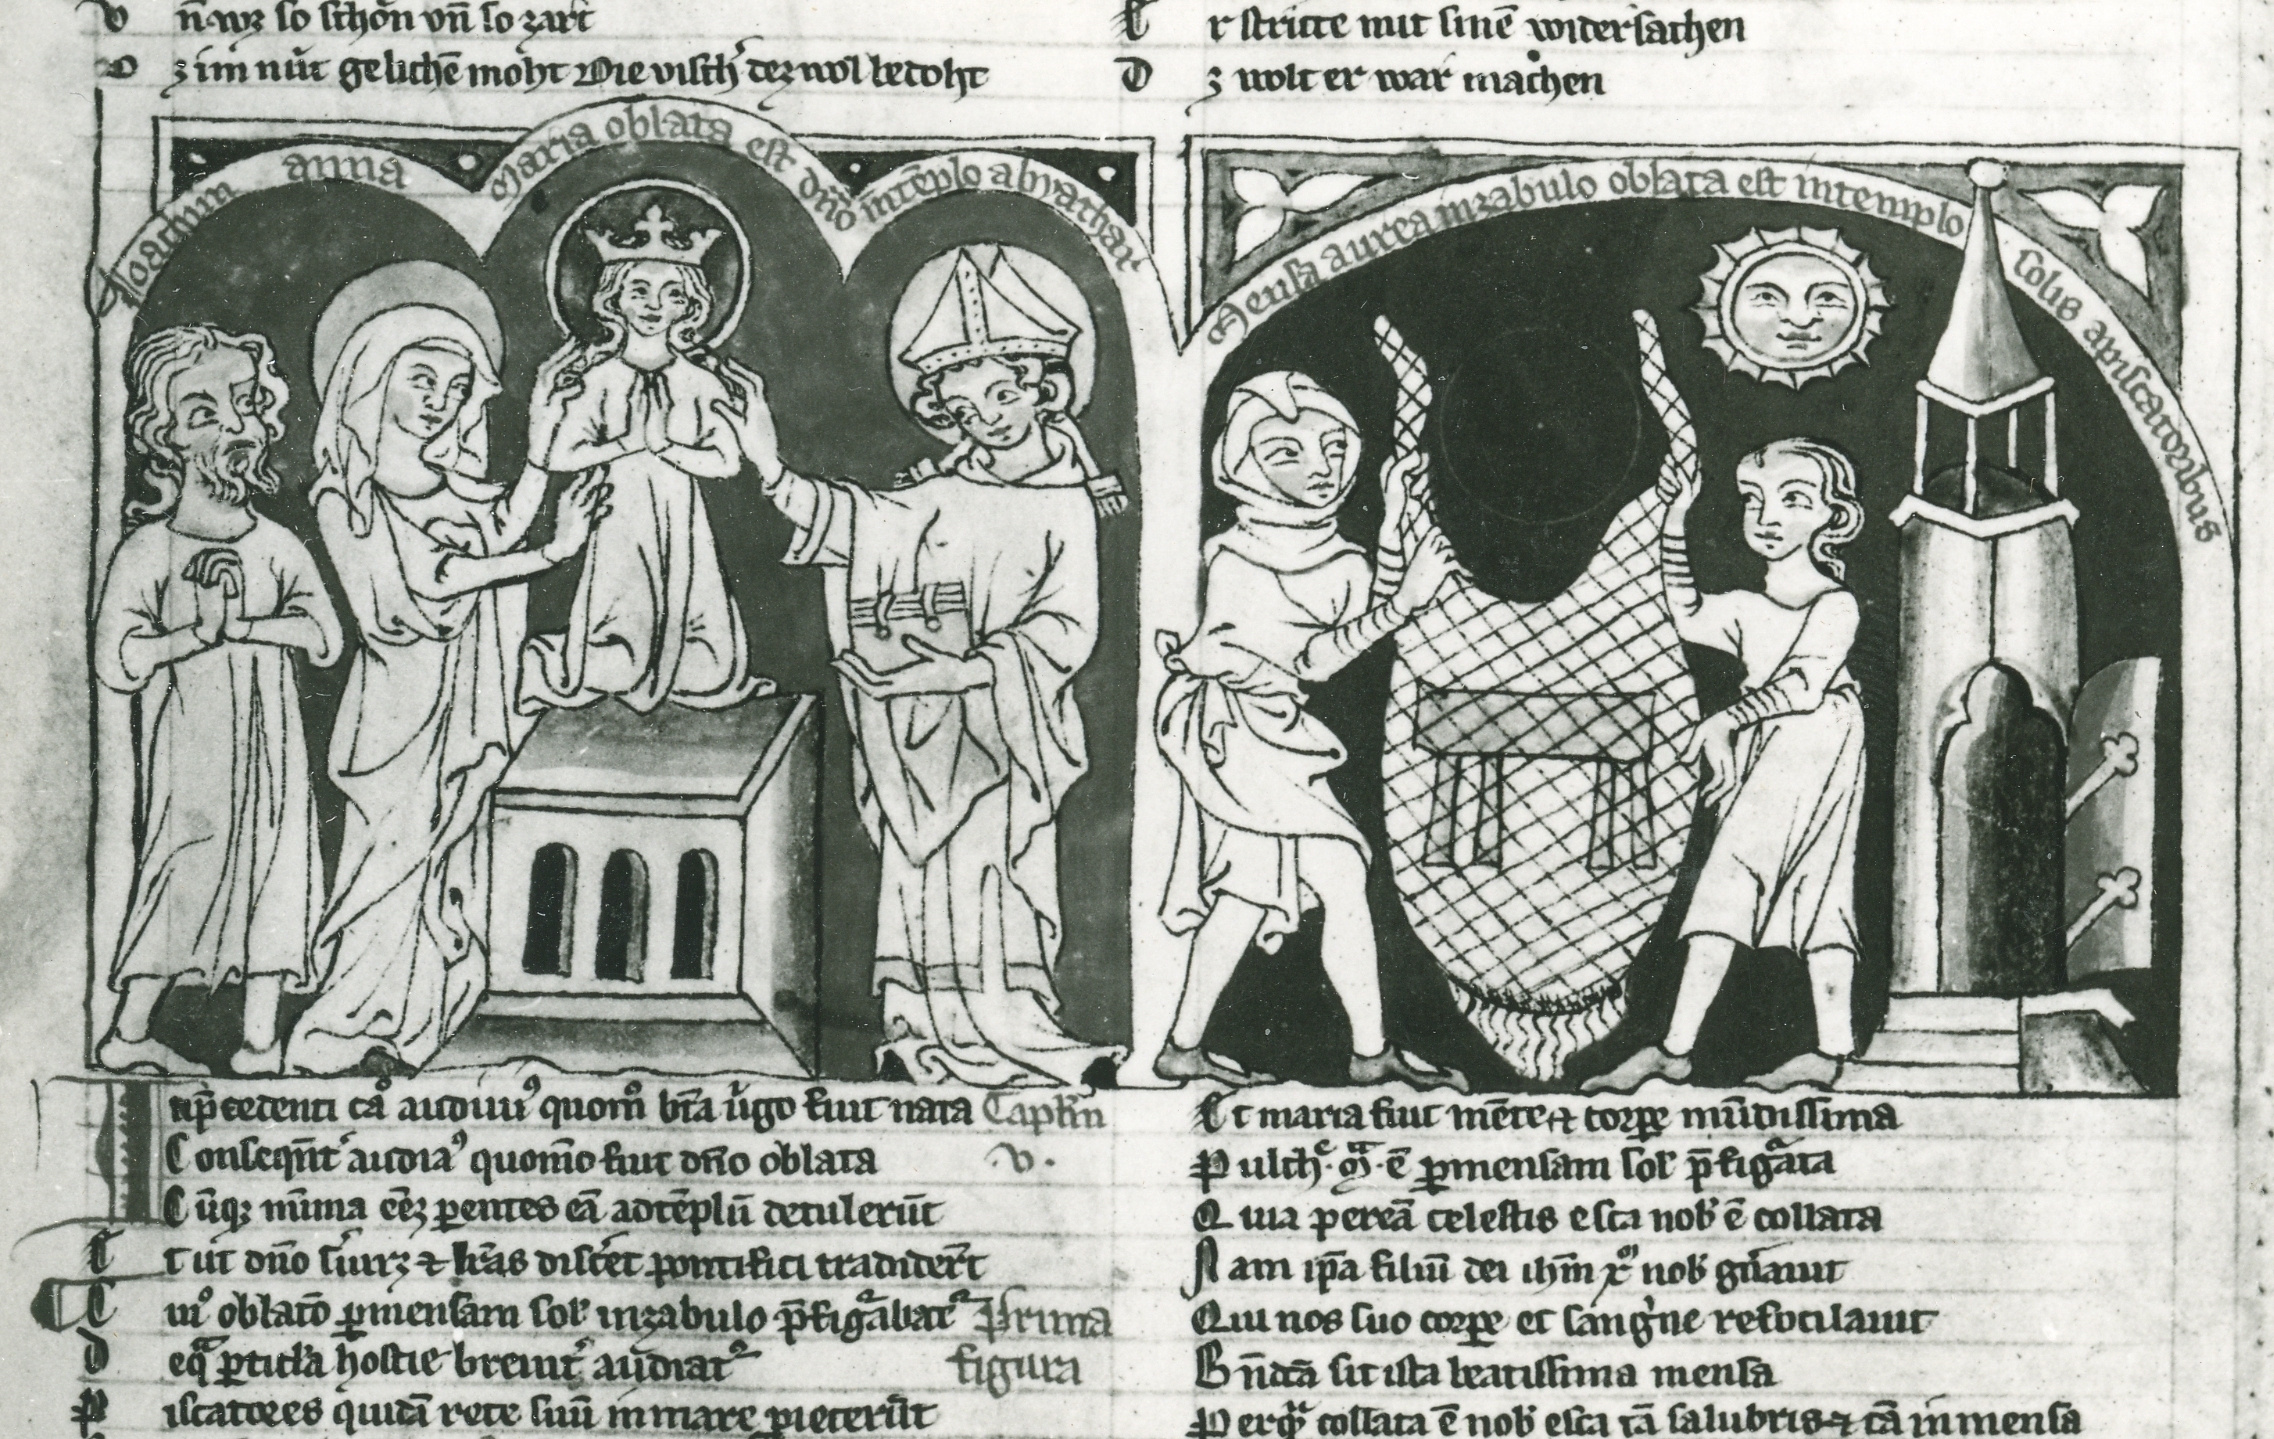 vn̄ wz so schŏn vn̄ so zart
Dz im nüt gelichē moht Die visch' dez wol bedoht
Er stritte mit sinē widersachen
Dz wolt er war machen
Joachim anna Maria oblata est dn̄o in tēplo abyathar
Mensa aurea in zabulo oblata est in templo solis a piscatoribus
In p̄cedenti ca° audiuim9 quom̊ bt̄a ũgo fuit nata Capl'm
Conseqn̄t' audiam9 quom̄o fuit dn̄o oblata .v.
Cūqz nīma eēz parentes eā ad tēplū detulerūt
Et ut dn̄o s'uirz ⁊ lr̄as disc'et pontifici tradider̄t
Cui9 oblatō p mensam sol' in zabulo p̄figᵃbat' Prima
De qᵃ pticl'a hostie breuit' audiat' figura
Piscatores quidā rete suū in mare p̄iecerūt
Et maria fuit mēte ⁊ corpe mūdissima
Pulch' · gᵃ · ē p mensam sol' p̄figᵃata
Quia p eeā celestis esca nob' ē collata
Nam ip̄a filiū dei ih̄m x° nob' gn̄auit
Qui nos suo corpe et sang'ne refocilauit
Bn̄dcā sit ista beatissima mensa
Per qᵃ collata ē nob' esca tā salubris ⁊ tā inmensa